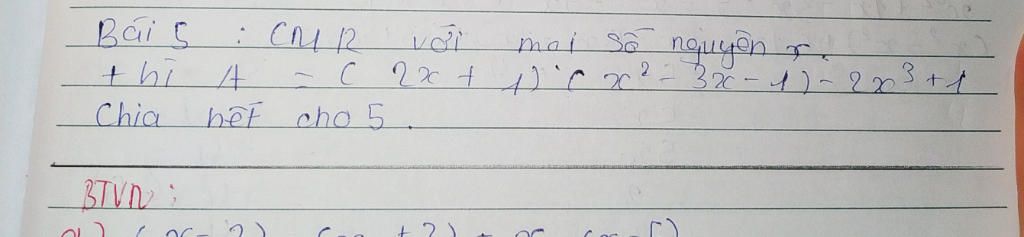 Bài 5 : CMR với mọi số nguyên x.
thì A = ( 2x + 1) . ( x² - 3x - 1) - 2x³ + 1
Chia hết cho 5 .
BTVN :